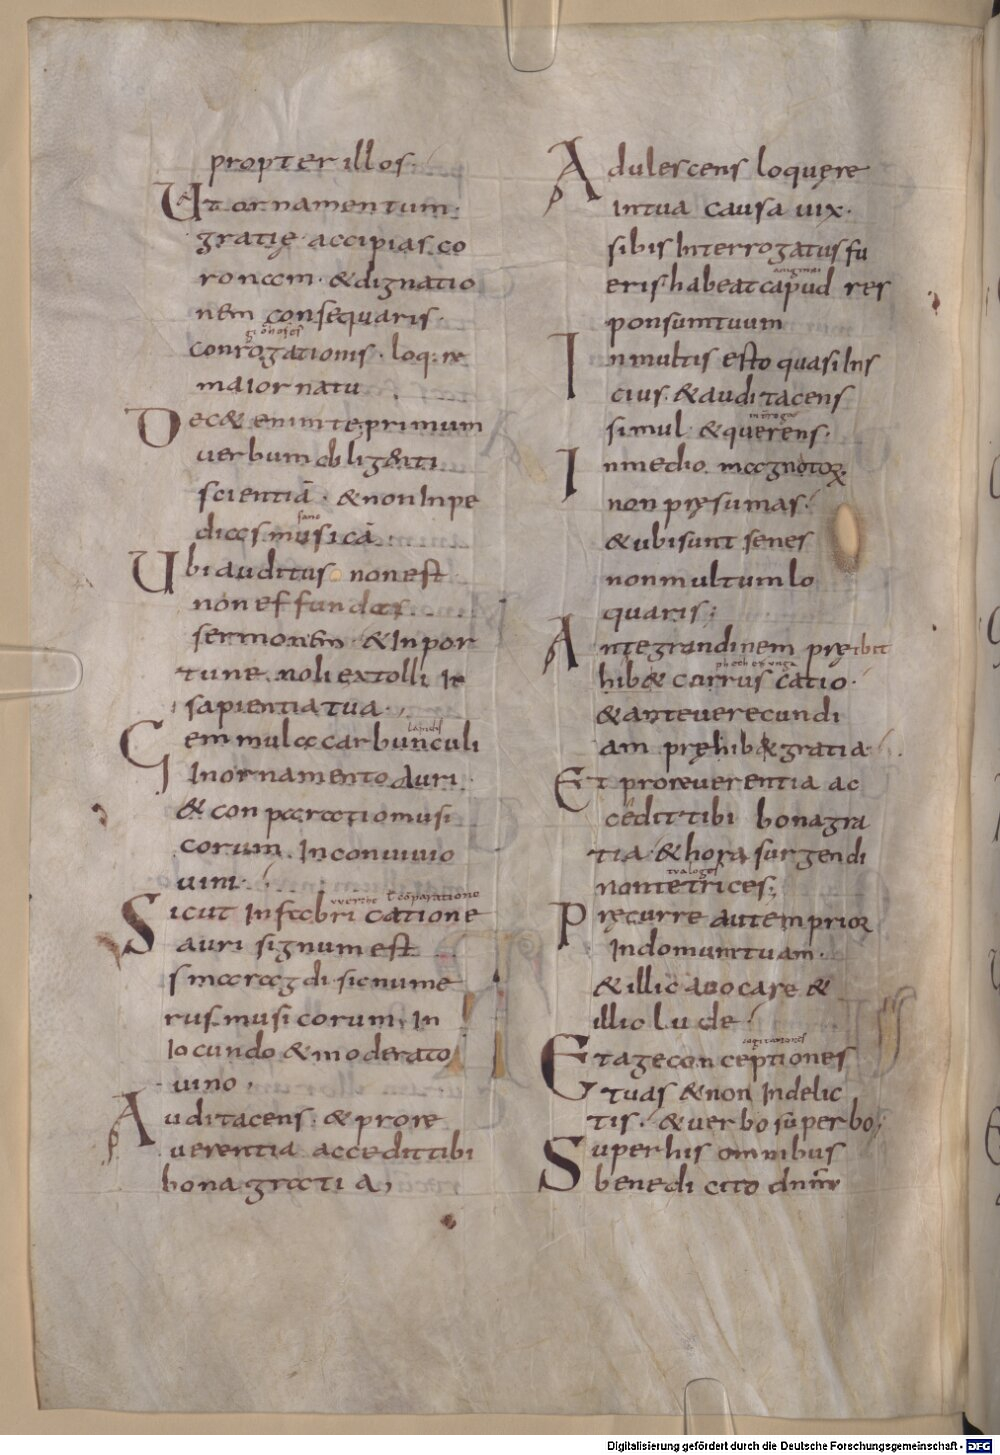 propter illos.
Ut ornamentum
gratię accipias co
ronam. & dignatio
nem consequaris.
conrogationis. loq:re
maior natu
Dec& enim te primum
uerbum
scientiā. & non Inpe
dias musicā
Ubi auditus non est
non effundas
sermonem & Inpor
tune. noli extolli In
sapientia tua.
lapidis
Gemmula carbunculi
In ornamento auri.
& conparatio musi
corum. In conuiuio
uini.
Sicut In fabricatione
auri signum est
smaragdi. sic nume
rus musicorum. In
Iocundo & moderato
uino.
Audi tacens. & pro re
uerentia accedit tibi
bona gratia,
Adulescens loquęre
In tua causa uix.
si bis Interrogatus fu
eris. habeat capud res
ponsum tuum
In multis esto quasi Ins
cius. & audi tacens
simul & querens.
In medio magnatorꝝ
non pręsumas.
& ubi sunt senes
non multum lo
quaris;
Ante grandinem pręibit
hib& corruscatio.
& ante uerecundi
am pręhib& gratia.
Et pro reuerentia ac
cedit tibi bona gra
tia. & hora surgendi
non te trices;
Pręcurre autem prior
In domum tuam.
& illic auocare &
illic lude.
Et age conceptiones
tuas & non In delic
tis. & uerbo superbo;
Super his omnibus
benedicito dnm̄
Digitalisierung gefördert durch die Deutsche Forschungsgemeinschaft - DFG